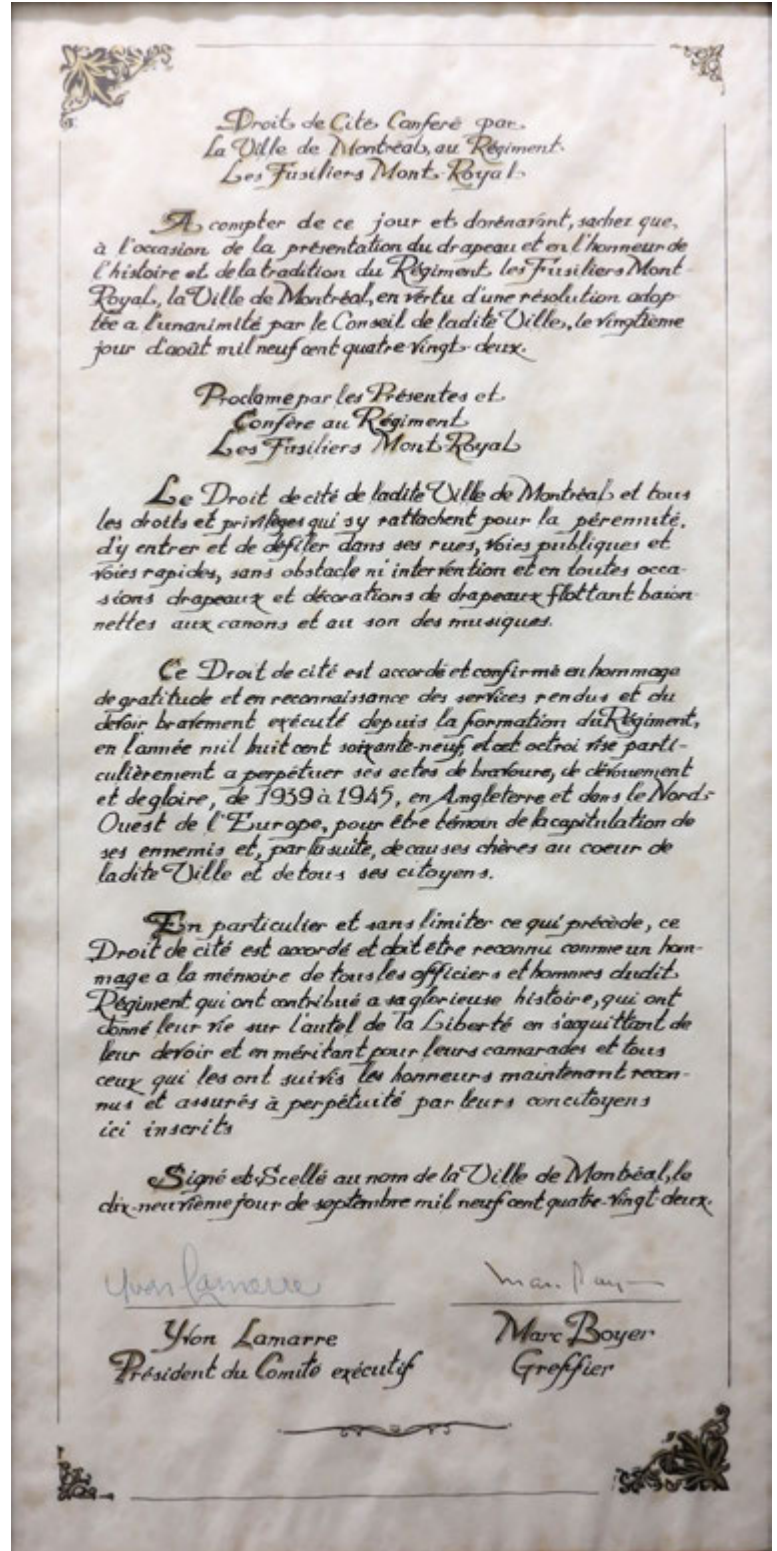 Droit de Cité Conferé par
La Ville de Montréal, au Régiment
Les Fusiliers Mont-Royal
A compter de ce jour et dorénavant, sachez que,
à l'occasion de la présentation du drapeau et en l'honneur de
l'histoire et de la tradition du Régiment les Fusiliers Mont-
Royal, la Ville de Montréal, en vertu d'une résolution adop-
tée a l'unanimité par le Conseil de ladite Ville, le vingtième
jour d'août mil neuf cent quatre-vingt-deux.
Proclame par les Présentes et
Confère au Régiment
Les Fusiliers Mont-Royal
Le Droit de cité de ladite Ville de Montréal et tous
les droits et privilèges qui s'y rattachent pour la pérennité,
d'y entrer et de défiler dans ses rues, voies publiques et
voies rapides, sans obstacle ni intervention et en toutes occa-
sions drapeaux et décorations de drapeaux flottant baion-
nettes aux canons et au son des musiques.
Ce Droit de cité est accordé et confirmé en hommage
de gratitude et en reconnaissance des services rendus et du
devoir bravement exécuté depuis la formation du Régiment,
en l'année mil huit cent soixante-neuf, et cet octroi vise parti-
culièrement a perpétuer ses actes de bravoure, de dévouement
et de gloire, de 1939 à 1945, en Angleterre et dans le Nord-
Ouest de l'Europe, pour être témoin de la capitulation de
ses ennemis et, par la suite, de causes chères au coeur de
ladite Ville et de tous ses citoyens.
En particulier et sans limiter ce qui précède, ce
Droit de cité est accordé et doit être reconnu comme un hom-
mage a la mémoire de tous les officiers et hommes dudit
Régiment qui ont contribué a sa glorieuse histoire, qui ont
donné leur vie sur l'autel de la Liberté en s'acquittant de
leur devoir et en méritant pour leurs camarades et tous
ceux qui les ont suivis les honneurs maintenant recon-
nus et assurés à perpétuité par leurs concitoyens
ici inscrits
Signé et Scellé au nom de la Ville de Montréal, le
dix-neuvième jour de septembre mil neuf cent quatre-vingt-deux.
Yvon Lamarre
Yvon Lamarre
Président du Comité exécutif
Marc Boyer
Greffier